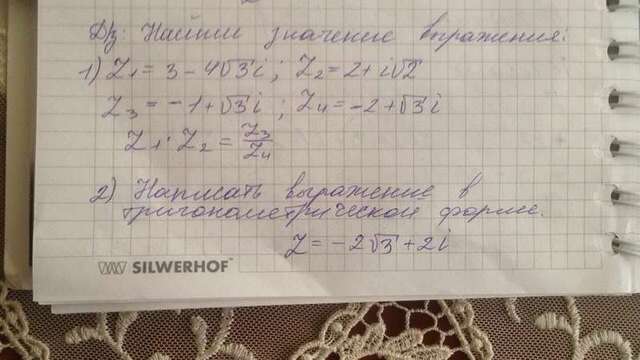 Д/з: Найти значение выражения:
1) Z₁ = 3 - 4√3i ; Z₂ = 2 + i√2
Z₃ = -1 + √3i ; Z₄ = -2 + √3i
Z₁ · Z₂ = Z₃/Z₄
2) Написать выражение в
тригонометрической форме.
Z = -2√3 + 2i
SILWERHOF